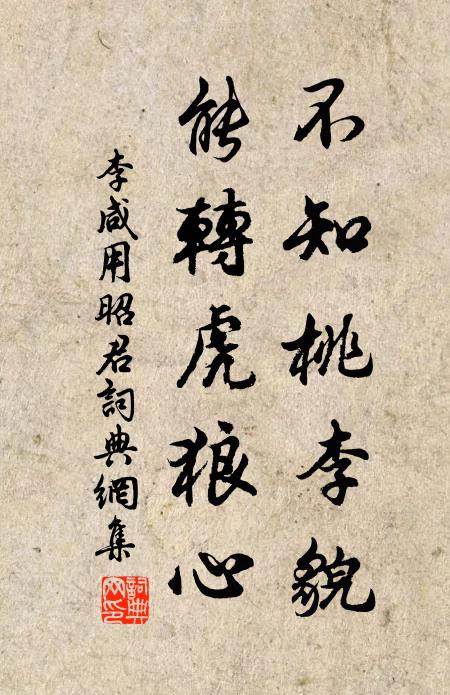 不知桃李貌
能轉虎狼心
李咸用昭君詞典網集
詞典網印